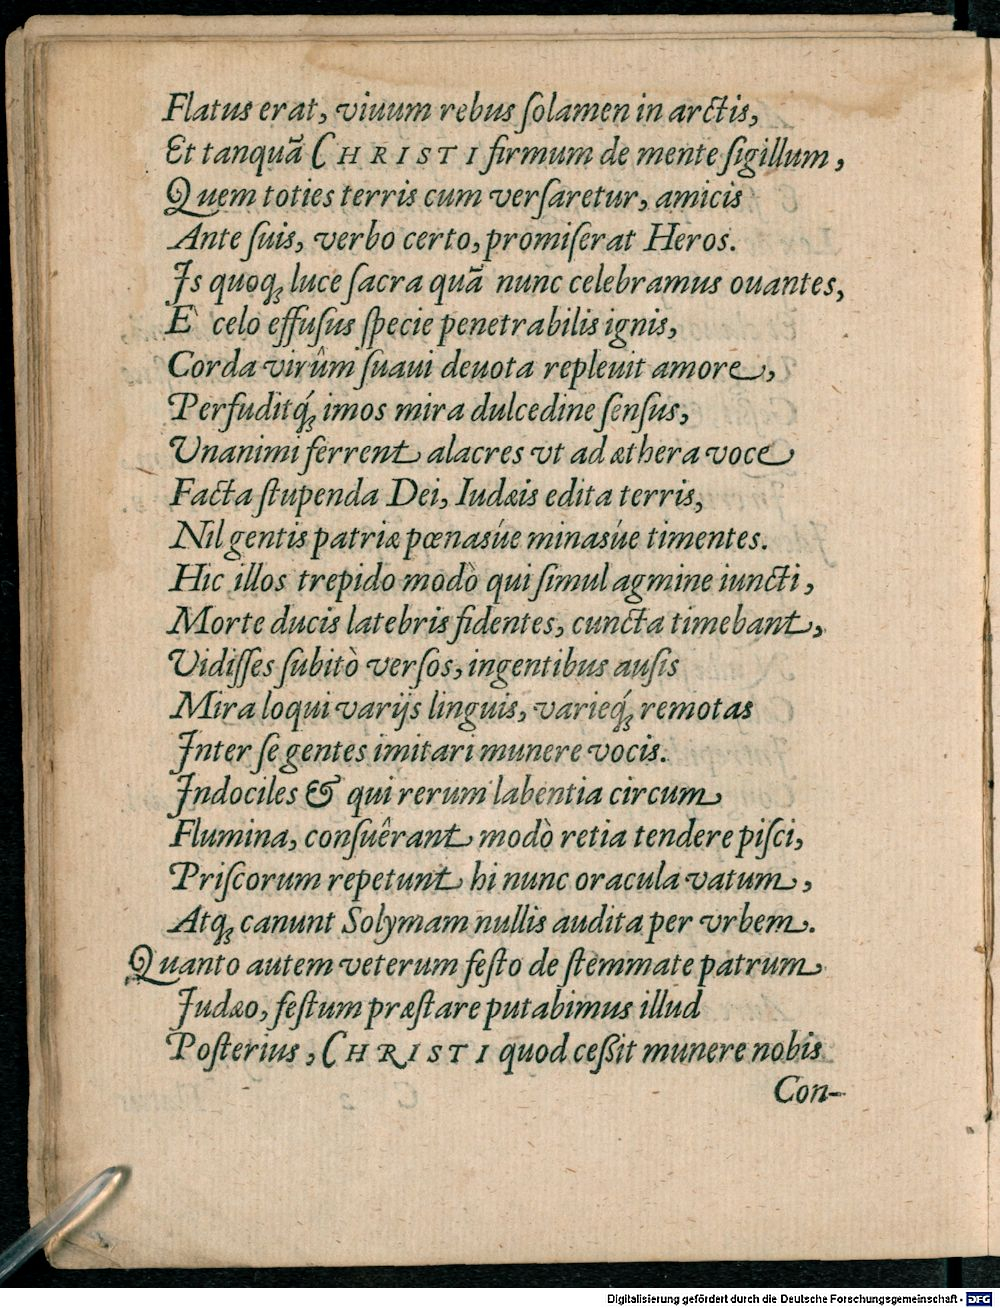 Flatus erat, viuum rebus ſolamen in arctis,
Et tanquã CHRISTI firmum de mente ſigillum,
Quem toties terris cum verſaretur, amicis
Ante ſuis, verbo certo, promiſerat Heros.
Is quoq; luce ſacra quã nunc celebramus ouantes,
E celo effuſus ſpecie penetrabilis ignis,
Corda virûm ſuaui deuota repleuit amore,
Perfuditq́; imos mira dulcedine ſenſus,
Unanimi ferrent alacres vt ad æthera voce
Facta ſtupenda Dei, Iudæis edita terris,
Nil gentis patriæ pœnasúe minasúe timentes.
Hic illos trepido modò qui ſimul agmine iuncti,
Morte ducis latebris fidentes, cuncta timebant,
Vidiſſes ſubitò verſos, ingentibus auſis
Mira loqui varijs linguis, varieq́; remotas
Inter ſe gentes imitari munere vocis.
Indociles & qui rerum labentia circum
Flumina, conſuêrant modò retia tendere piſci,
Priſcorum repetunt hi nunc oracula vatum,
Atq; canunt Solymam nullis audita per vrbem.
Quanto autem veterum feſto de ſtemmate patrum
Iudæo, feſtum præſtare putabimus illud
Poſterius, CHRISTI quod ceßit munere nobis
Con-
Digitalisierung gefördert durch die Deutsche Forschungsgemeinschaft - DFG